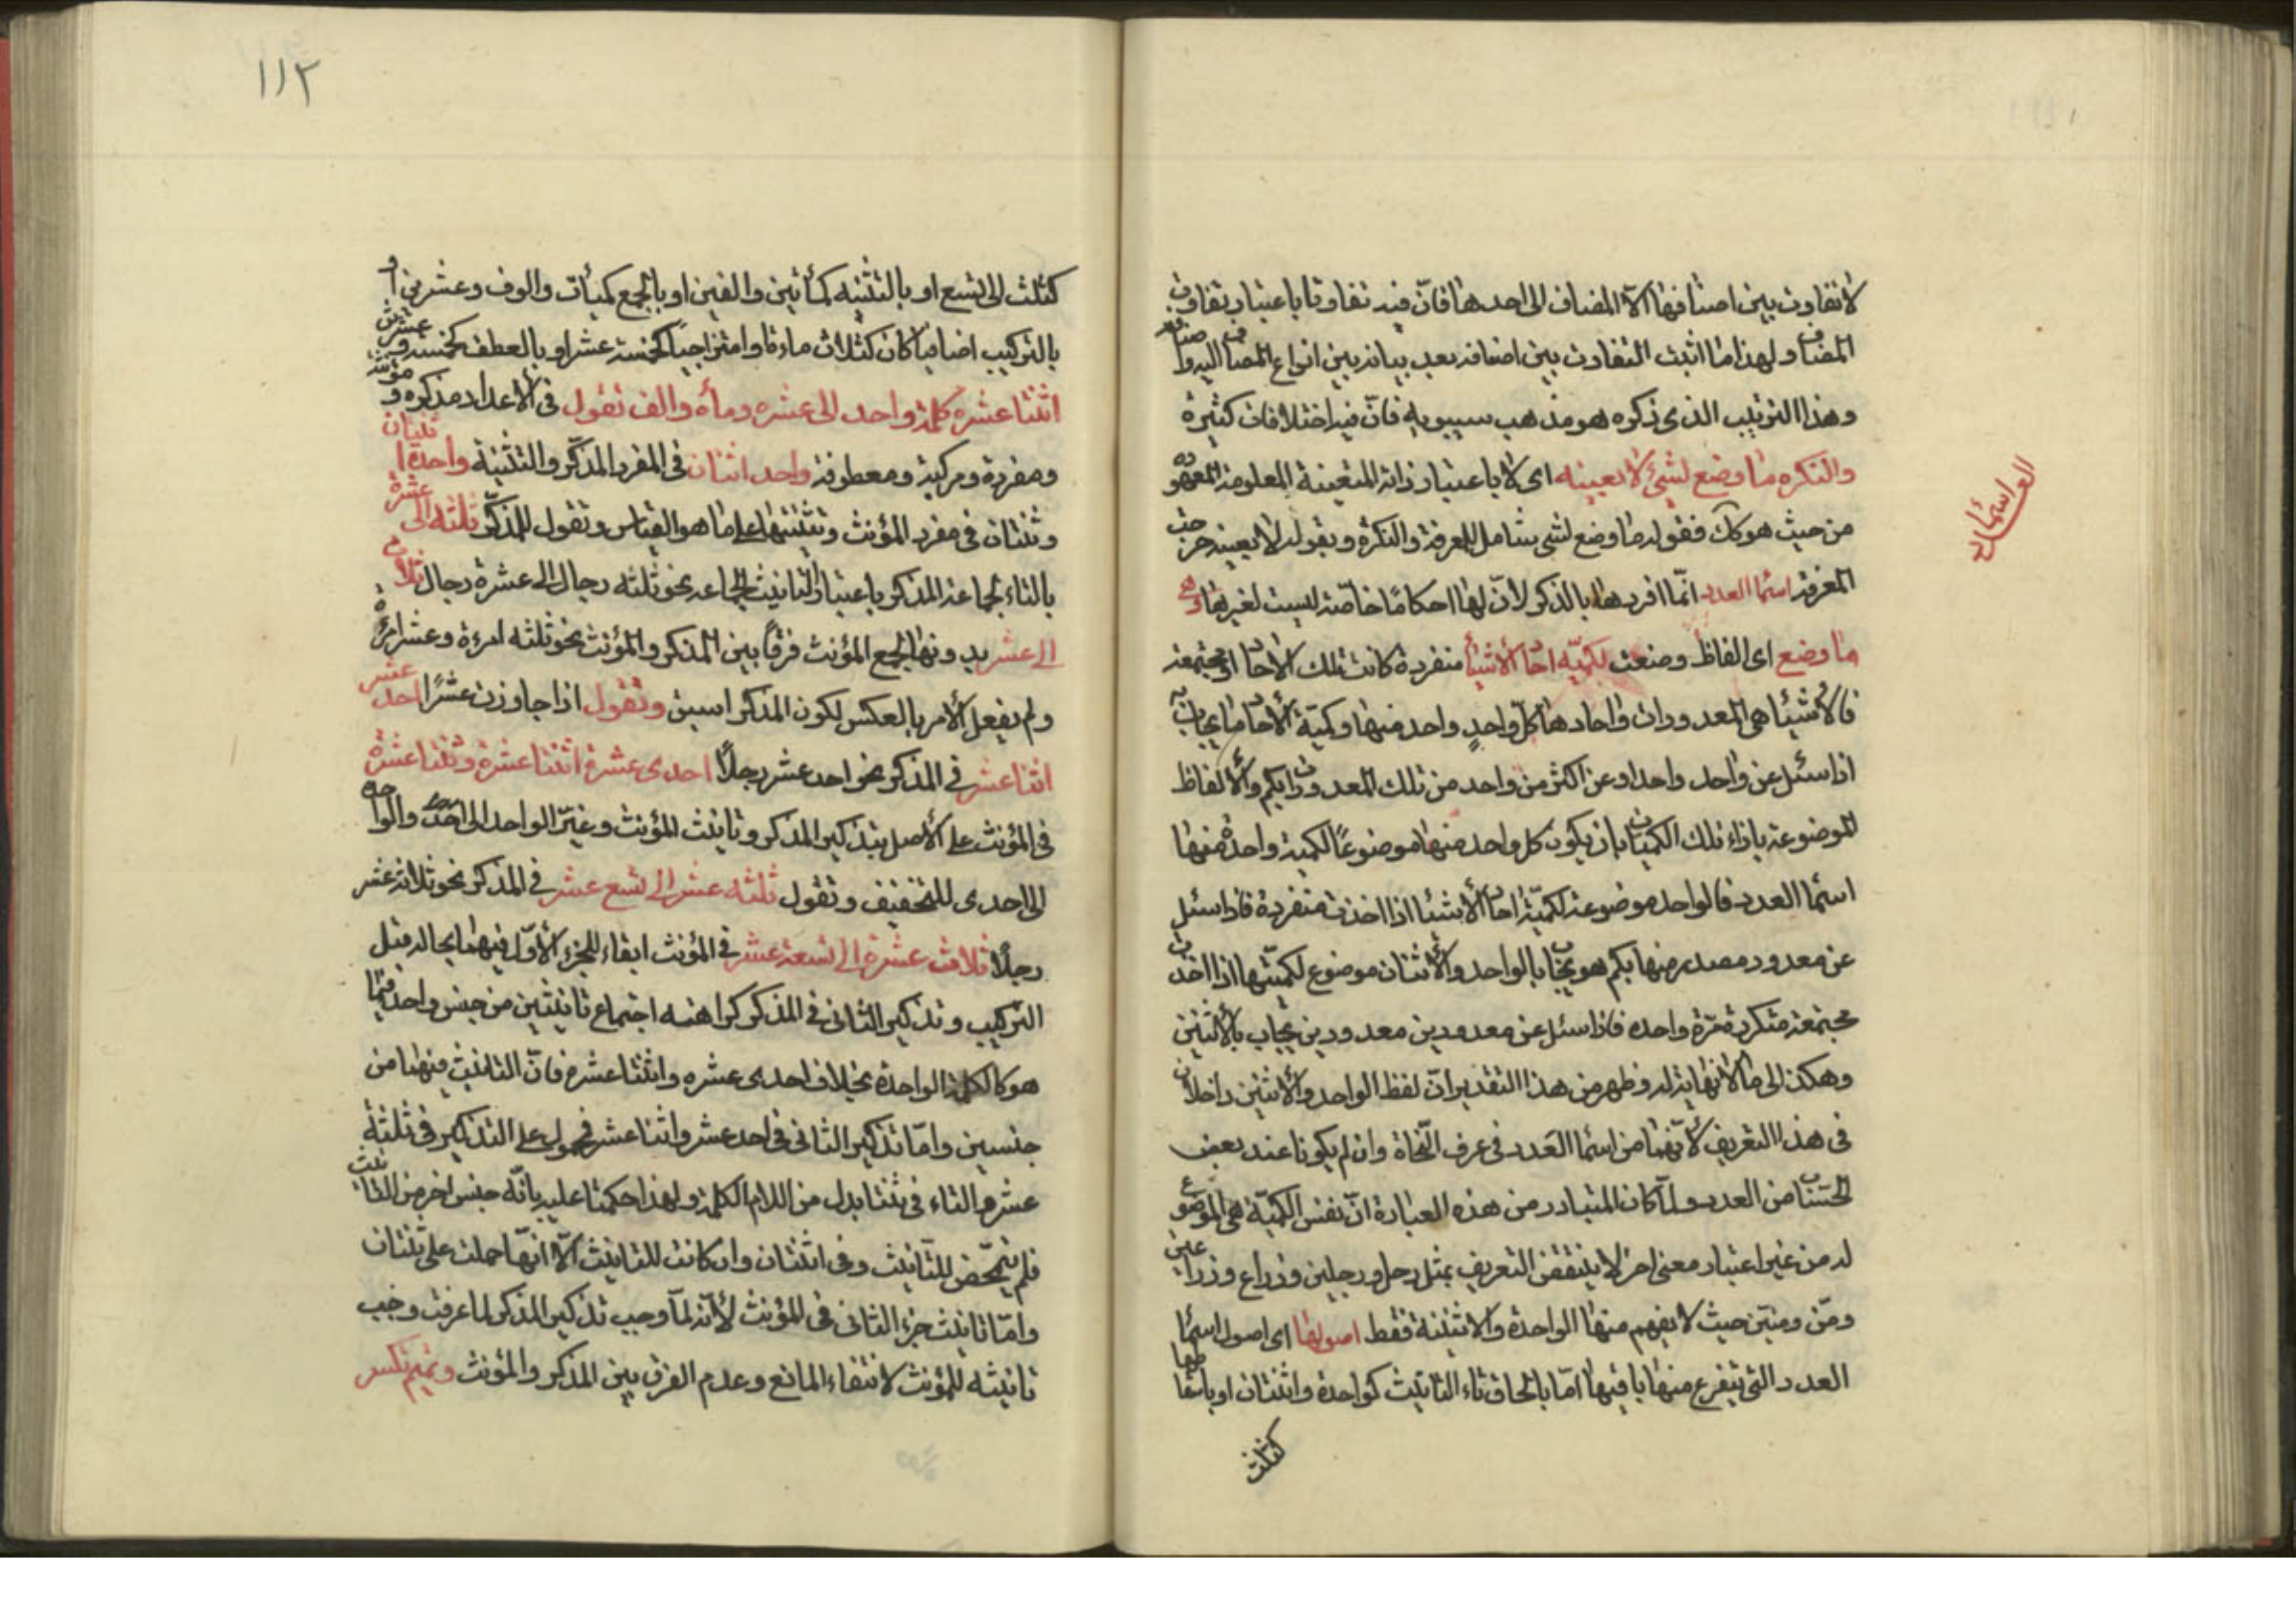 لا تفاوت بين اصنافها الا المضاف الى احدها فان فيه تفاوتا باعتبار تفاوت
المضاف ولهذا ما اثبت التفاوت بين اضافه بعد بيانه بين انواع المضاف اليه
وهذا الترتيب الذى ذكره هو مذهب سيبويه فانّ فيه اختلافات كثيرة
والنكره ما وضع لشئ لا بعينه اى لا باعتبار ذاته المتعينة المعلومة المعهوده
من حيث هو كك فقوله ما وضع لشى شامل للمعرفة والنكرة وبقوله لا بعينه خرجت
المعرفة اسما العدد انّما افردها بالذكر لانّ لها احكامًا خاصّة ليست لغيرها وهى
ما وضع اى الفاظ وضعت لكميّه احاد الاشيأ منفردة كانت تلك الاحاد او مجتمعة
فالاشيا هى المعدودات واحادها كلّ واحدٍ واحد منها وكميّة الاحاد ما يجاب به
اذا سئل عن واحد واحد او عن اكثر من واحد من تلك المعدودات بكم والالفاظ
الموضوعة بازاء تلك الكميات بان يكون كل واحد منها موضوعًا لكمية واحدة منها
اسما العدد فالواحد موضوعة لكميّة احاد الاشيا اذا اخذت منفردة فاذا سئل
عن معدود معدود منها بكم هو يجاب بالواحد والاثنان موضوع لكميتها اذا اخذت
مجتمعة متكررة مرّة واحده فاذا سئل عن معدودين معدودين يجاب بالاثنين
وهكذا الى ما لا نهاية له وظهر من هذا التقدير انّ لفظ الواحد والاثنين داخلان
فى هذا التعريف لانّهما من اسما العدد فى عرف النّحاة وان لم يكونا عند بعض
الحسّاب من العدد ولمّا كان المتبادر من هذه العبارة انّ نفس الكميّة هى الموضوع
له من غير اعتبار معنى اخر لا ينتقض التعريف بمثل رجل ورجلين وذراع وذراعين
ومنّ ومنيّن حيث لا يفهم منها الواحدة والاثنينة فقط اصولها اى اصول اسما
العدد التى يتفرع منها باقيها امّا بالحاق تاء التانيث كواحدة واثنتان او باسقاطها
كثلث
اسماء العدد
١١٢
كثلث الى تسع او بالتثنيه كمأتين والفين او بالجمع كميأت والوف وعشرين او
بالتركيب اضافيا كان كثلاث مائة او امتزاجيًا كخمسة عشر او بالعطف كخمسة وعشرين
اثنتا عشره كلمة واحد الى عشره ومأة والف تقول فى الاعداد مذكره و مؤنثه
ومفردة ومركبة ومعطوفة واحد اثنان فى المفرد المذكّر والتثنية واحدة اثنتان
وثنتان فى مفرد المؤنث وتثنيتها على ما هو القياس وتقول للمذكّر ثلثه الى عشرة
بالتاء لجماعة المذكر باعتبار التانيث الجماعه نحو ثلثه رجال الى عشرة رجال ثلاث
الى عشر بدونها لجمع المؤنث فرقًا بين المذكر والمؤنث نحو ثلثه امرءة وعشر امرءة
ولم يفعل الامر بالعكس لكون المذكر اسبق وتقول اذا جاوزت عشرًا احد عشر
اثنا عشر فى المذكر نحو احد عشر رجلًا احدى عشرة اثنتا عشرة وثنتا عشرة
فى المؤنث على الاصل بتذكير المذكر وتانيث المؤنث وغيّر الواحد الى احد والواحدة
الى احدى للتخفيف وتقول ثلثه عشر الى تسع عشر فى المذكر نحو ثلاثة عشر
رجلًا ثلاث عشرة الى تسعة عشر فى المؤنث ابقاء للجزء الاوّل فيهما بحاله قبل
التركيب وتذكير الثانى فى المذكر كراهة اجتماع تانيثين من جنس واحد فيما
هو كالكلمة الواحدة بخلاف احدى عشره واثنتا عشره فانّ التانيث فيهما من
جنسين وامّا تذكير الثانى فى احد عشر واثنا عشر فمحمول على التذكير فى ثلثة
عشره والتاء فى ثنتا بدل من اللام الكلمة ولهذا حكمنا عليه بانّه جنس اخر من التانيث
فلم يتمحّض للتّانيث وفى اثنتان وان كانت للتانيث الّا انهّا حملت على ثنتان
وامّا تانيث جزء الثانى فى المؤنث لانّه لمّا وجب تذكير المذكر لما عرفت وجب
تانيثه للمؤنث لانتفاء المانع وعدم الفرق بين المذكر والمؤنث وتميم تكسر